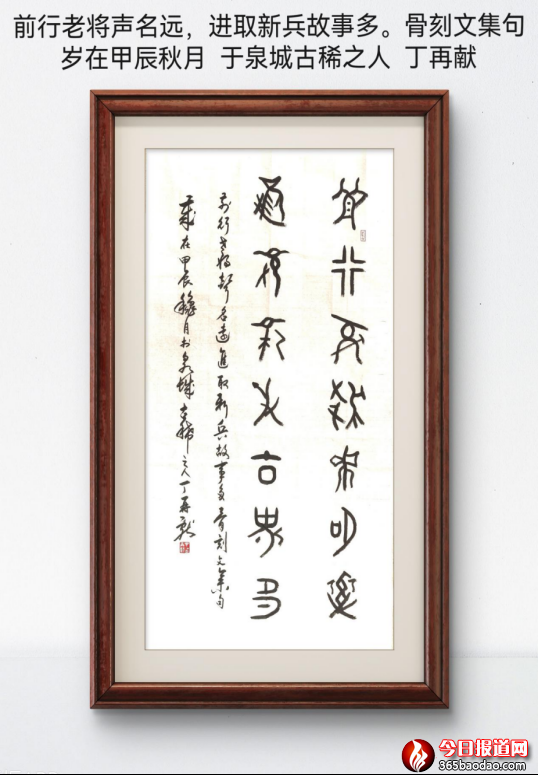 前行老将声名远，进取新兵故事多。骨刻文集句
岁在甲辰秋月 于泉城古稀之人 丁再献
前行老將聲名遠
進取新兵故事多
前行老將聲名遠進取新兵故事多骨刻文集句
歲在甲辰穐月於泉城古稀之人丁再献
今日报道网
365baodao.com